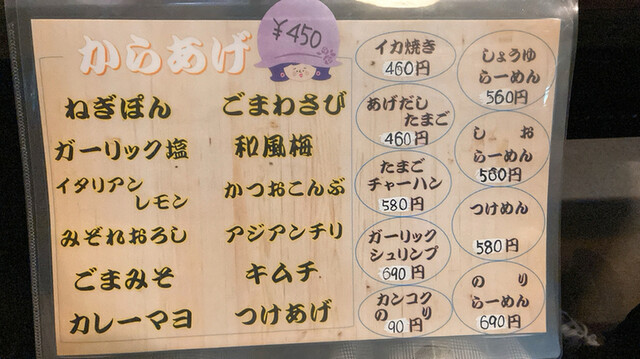 からあげ
¥450
ねぎぽん
ガーリック塩
イタリアン
レモン
みぞれおろし
ごまみそ
カレーマヨ
ごまわさび
和風梅
かつおこんぶ
アジアンチリ
キムチ
つけあげ
イカ焼き
460円
あげだし
たまご
460円
たまご
チャーハン
580円
ガーリック
シュリンプ
690円
カンコク
のり
90円
しょうゆ
らーめん
560円
しお
らーめん
560円
つけめん
580円
のり
らーめん
690円